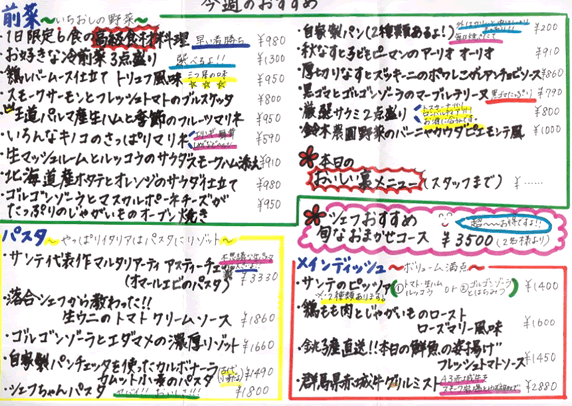 今週のおすすめ
前菜 〜いちおしの野菜〜
・1日限定6食の高級食材料理 早い者勝ち ¥980
・お好きな冷前菜 3点盛り 選べるよ!! ¥1300
・鶏レバームース仕立て トリュフ風味 三つ星の味 ☆☆☆ ¥950
・スモークサーモンとフレッシュトマトのブルスケッタ ¥800
・王道パルマ産生ハムと季節のフルーツマリネ ¥950
・いろんなキノコのさっぱりマリネ ¥590
・生マッシュルームとルッコラのサラダスモークハム添え ¥910
・北海道産ホタテとオレンジのサラダ仕立て ¥980
・ゴルゴンゾーラとマスカルポーネチーズが
たっぷりのじゃがいものオーブン焼き ¥950
・自家製パン(2種類あるよ!) ¥200
・秋なすと子どもピーマンのアーリオ オーリオ ¥910
・厚切りなすとズッキーニのボウレこがしアンチョビソース ¥860
・黒ゴマとゴルゴンゾーラのマーブルテリーヌ ¥790
・厳選サラミ2点盛り ¥800
・鈴木農園野菜のバーニャカウダピエモンテ風 ¥1000
本日の
おいしい裏メニュー(スタッフまで) ¥......
シェフおすすめ
旬なおまかせコース ¥3500 (2名様より)
パスタ 〜やっぱりイタリアはパスタにリゾット〜
・サンテ代表作 マルタリアーティ アスティーチェ
(オマールエビのパスタ) ¥3330
・落合シェフから教わった!!
生ウニのトマトクリームソース ¥1860
・ゴルゴンゾーラとエダマメの濃厚リゾット ¥1660
・自家製パンチェッタを使ったカルボナーラ
カムット小麦のパスタ ¥1490
・シェフちゃんパスタ ¥1800
メインディッシュ 〜ボリューム満点〜
・サンテのピッツァ ①トマト・生ハム ルッコラ or ②ゴルゴンゾーラ とはちみつ ¥1400
2種類あります
・鶏もも肉とじゃがいものロースト
ローズマリー風味 ¥1600
・銚子産直送!!本日の鮮魚の姿揚げ
フレッシュトマトソース ¥1450
・群馬県赤城牛グリルミスト ¥2880